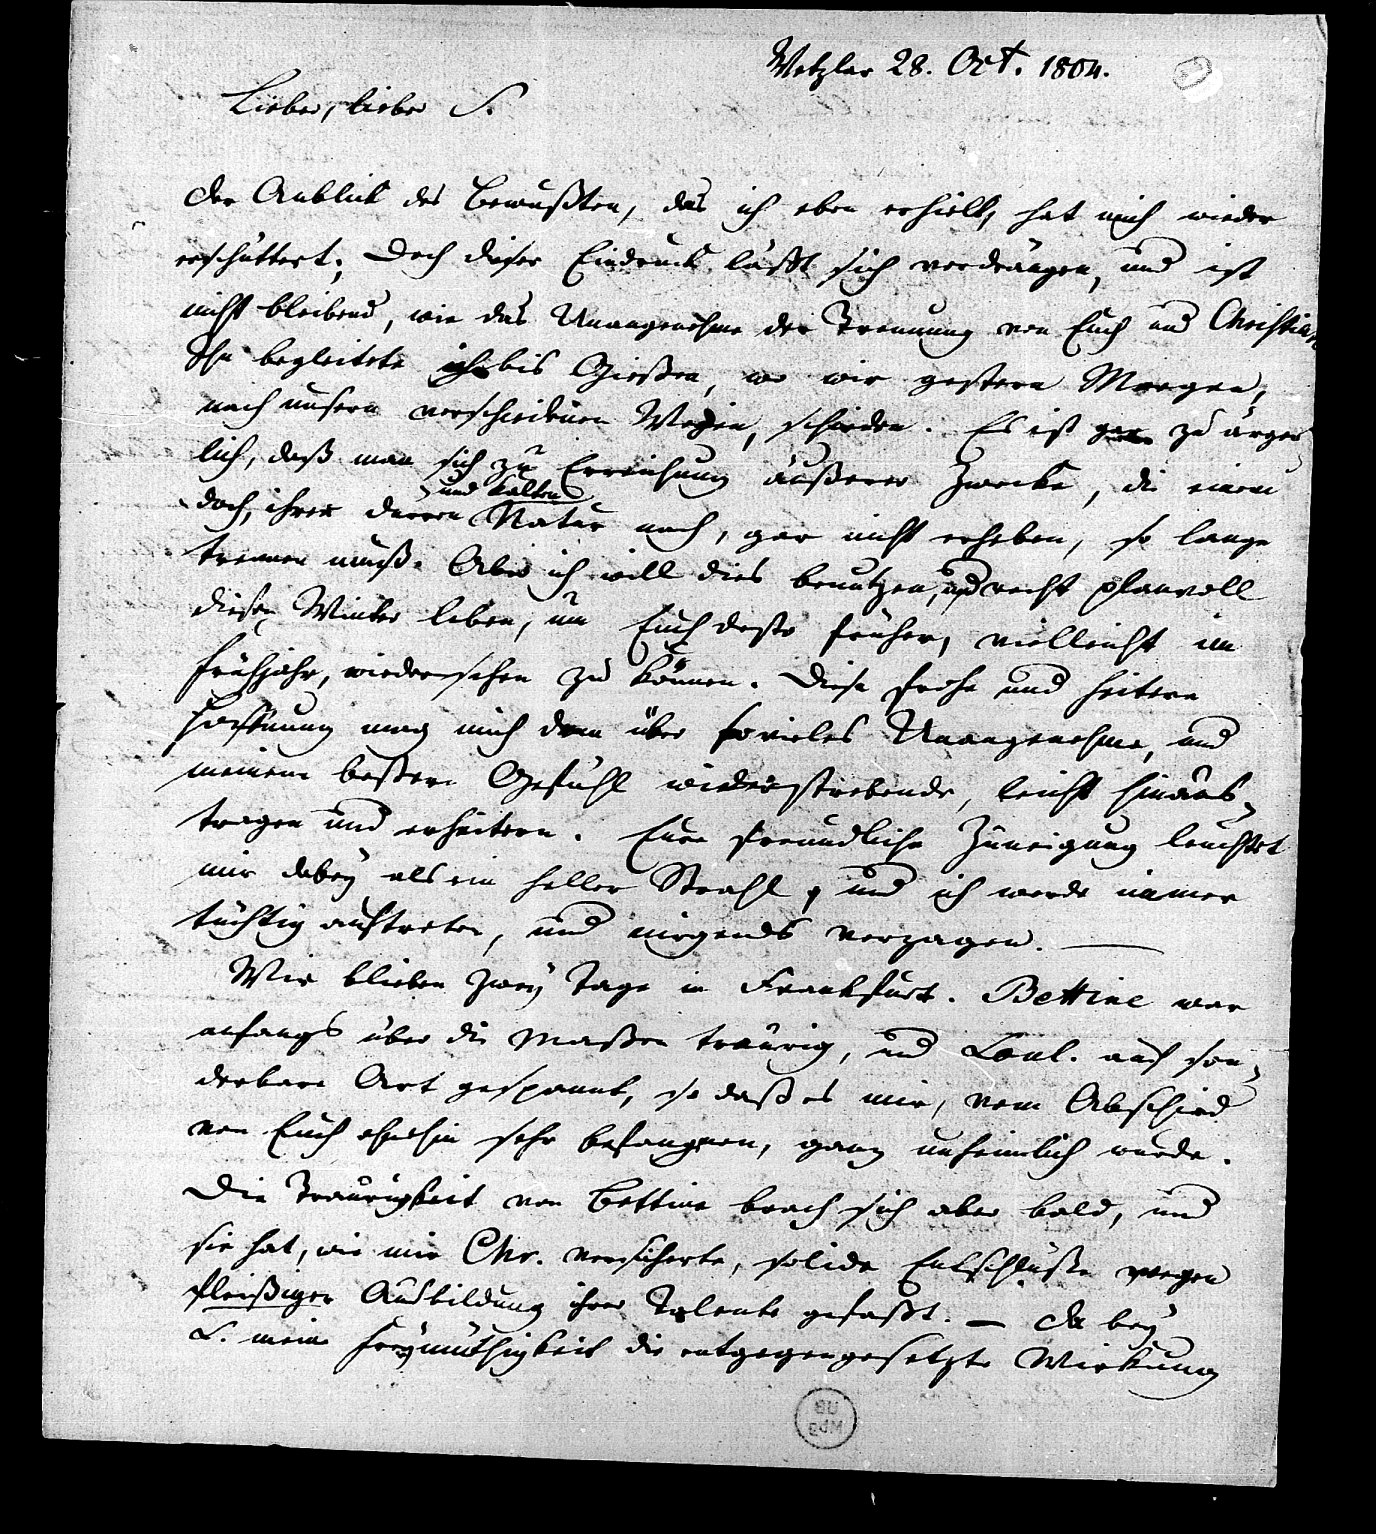 Wetzlar 28. Oct. 1804.
Lieber, lieber S.
Der Anblick des Bewußten, das ich eben erhielt, hat mich wieder
erschüttert; Doch dieser Eindruck läßt sich verdrängen, und ist
nicht bleibend, wie das Unangenehme der Trennung von Euch und Christian
Ihn begleitete ich bis Gießen, wo wir gestern Morgen,
nach unsern verschiedenen Wegen, schieden. Es ist gar zu ärger
lich, daß man sich zu Erreichung äußerer Zwecke, die einem
doch, ihrer dürren und kalten Natur nach, gar nicht erheben, so lange
trennen muß. Aber ich will dies benutzen, und recht planvoll
diesen Winter leben, um Euch desto früher, vielleicht im
Frühjahr, wiedersehen zu können. Diese frohe und heitere
Hoffnung mag mich denn über so vieles Unangenehme, und
meinem beßern Gefühl widerstrebende, leicht hinaus-
tragen und erheitern. Eure freundliche Zuneigung leuchtet
mir dabey als ein heller Strahl, und ich werde immer
tüchtig auftreten, und nirgends verzagen. —
Wir blieben zwey Tage in Frankfurt. Bettine war
anfangs über die Maßen traurig, und Loul. auf son-
derbare Art gespannt, so daß es mir, vom Abschied
von Euch ohnehin sehr befangnen, ganz unheimlich wurde.
Die Traurigkeit von Bettine brach sich aber bald, und
sie hat, wie mir Chr. versicherte, solide Entschlüße wegen
fleißiger Ausbildung ihrer Talente gefaßt. — Da bey
L. meine Freymüthigkeit die entgegengesetzte Wirkung